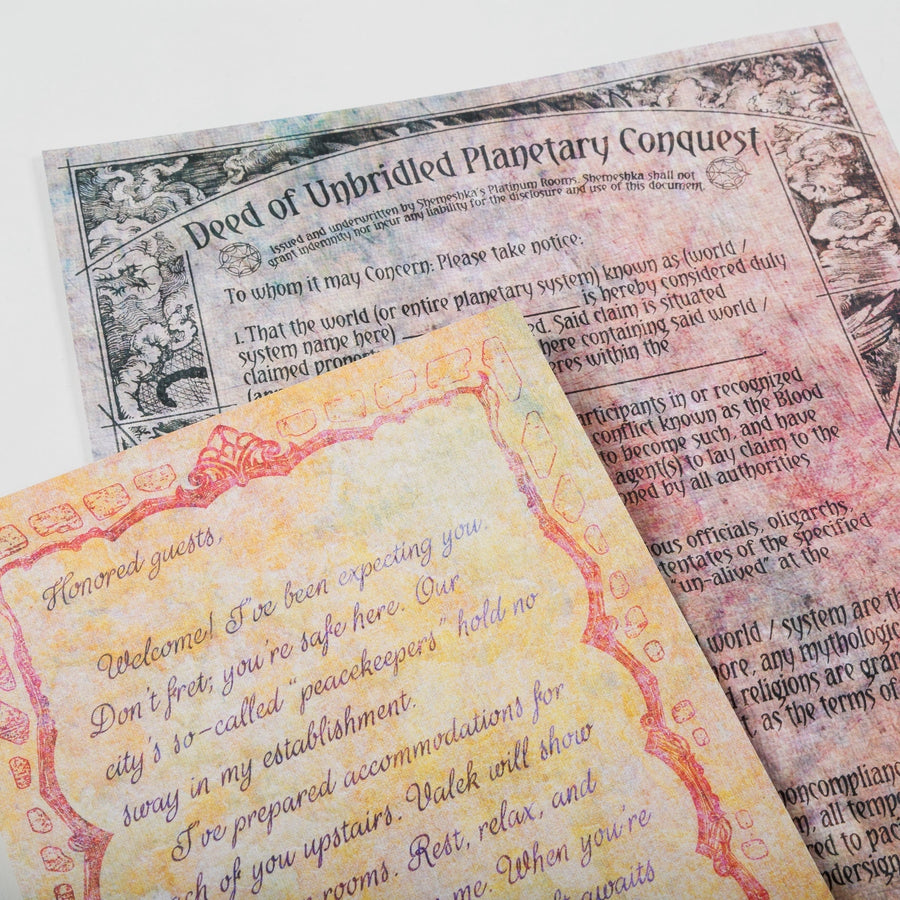 Deed of Unbridled Planetary Conquest
Issued and underwritten by Shemeshka's Platinum Rooms. Shemeshka shall not
grant indemnity nor incur any liability for the disclosure and use of this document.
To whom it may Concern: Please take notice:
1. That the world (or entire planetary system) known as (world /
system name here) is hereby considered duly
claimed Said claim is situated
here containing said world /
within the
articipants in or recognized
conflict known as the Blood
to become such, and have
agent(s) to lay claim to the
by all authorities
officials, oligarchs,
of the specified
"un-alived" at the
world / system are
any mythologic
religions are gran
as the terms of
noncomplianc
all tempo
to pac
Honored guests,
Welcome! I've been expecting you.
Don't fret; you're safe here. Our
city's so-called "peacekeepers" hold no
sway in my establishment.
I've prepared accommodations for
each of you upstairs. Valek will show
rooms. Rest, relax, and
me. When you're
awaits